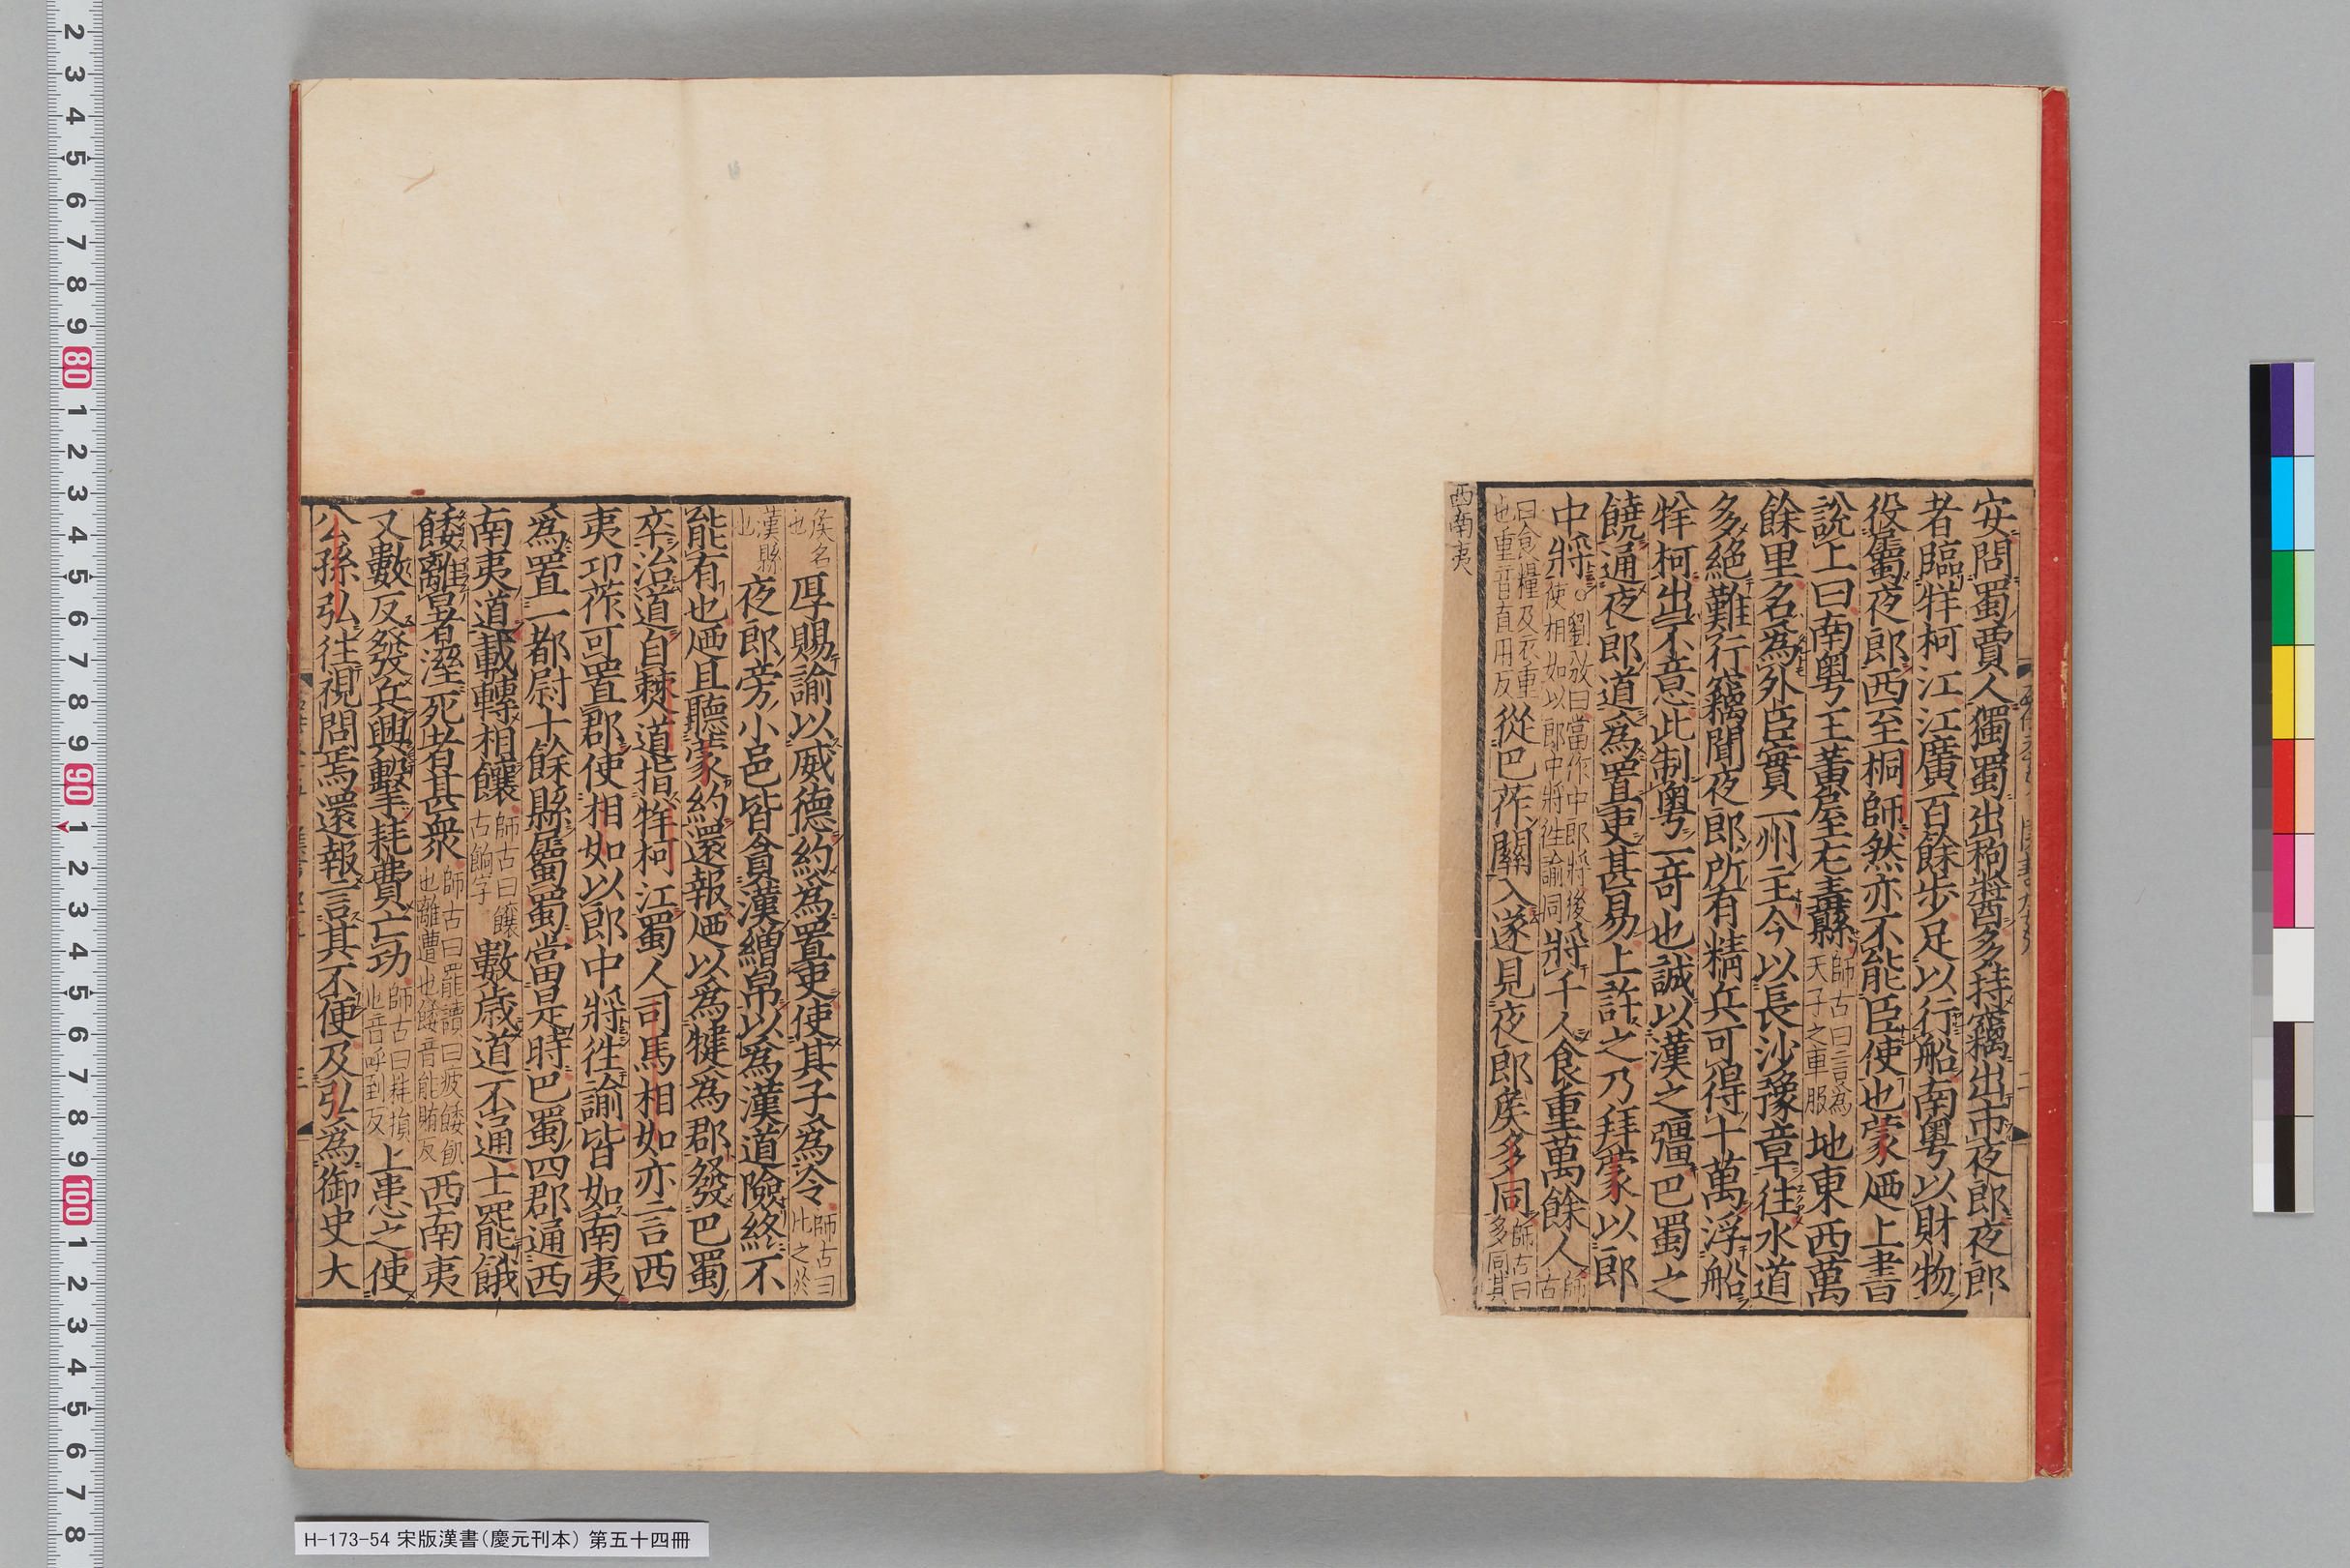 安問蜀賈人獨蜀出枸醬多持竊出市夜郎夜郎
者臨牂柯江江廣百餘步足以行船南粤以財物
役屬夜郎西至桐師然亦不能臣使也蒙廼上書
說上曰南粤王黃屋左纛師古曰言爲天子之車服地東西萬
餘里名爲外臣實一州主今以長沙豫章往水道
多絕難行竊聞夜郎所有精兵可得十萬浮船
牂柯出不意此制粤一奇也誠以漢之彊巴蜀之
饒通夜郎道爲置吏甚易上許之乃拜蒙以郎
中將○劉攽曰當作中郎將後使相如以郎中將往諭同將千人食重萬餘人師古
曰食糧及衣重也重音直用反從巴莋關入遂見夜郎侯多同師古曰多同其
西南夷
侯名也厚賜諭以威德約爲置吏使其子爲令師古曰比之於
漢縣也夜郎旁小邑皆貪漢繒帛以爲漢道險終不
能有也廼且聽蒙約還報廼以爲犍爲郡發巴蜀
卒治道自僰道指牂柯江蜀人司馬相如亦言西
夷卭莋可置郡使相如以郎中將往諭皆如南夷
爲置一都尉十餘縣屬蜀當是時巴蜀四郡通西
南夷道載轉相饟師古曰饟古餉字數歲道不通士罷餓
餧離暑溼死者甚衆師古曰罷讀曰疲餧飢也離遭也餧音能賄反西南夷
又數反發兵興擊耗費亡功師古曰耗損也音呼到反上患之使
公孫弘往視問焉還報言其不便及弘爲御史大
三
H-173-54 宋版漢書（慶元刊本） 第五十四冊
2
3
4
5
6
7
8
9
80
1
2
3
4
5
6
7
8
9
90
1
2
3
4
5
6
7
8
9
100
1
2
3
4
5
6
7
8